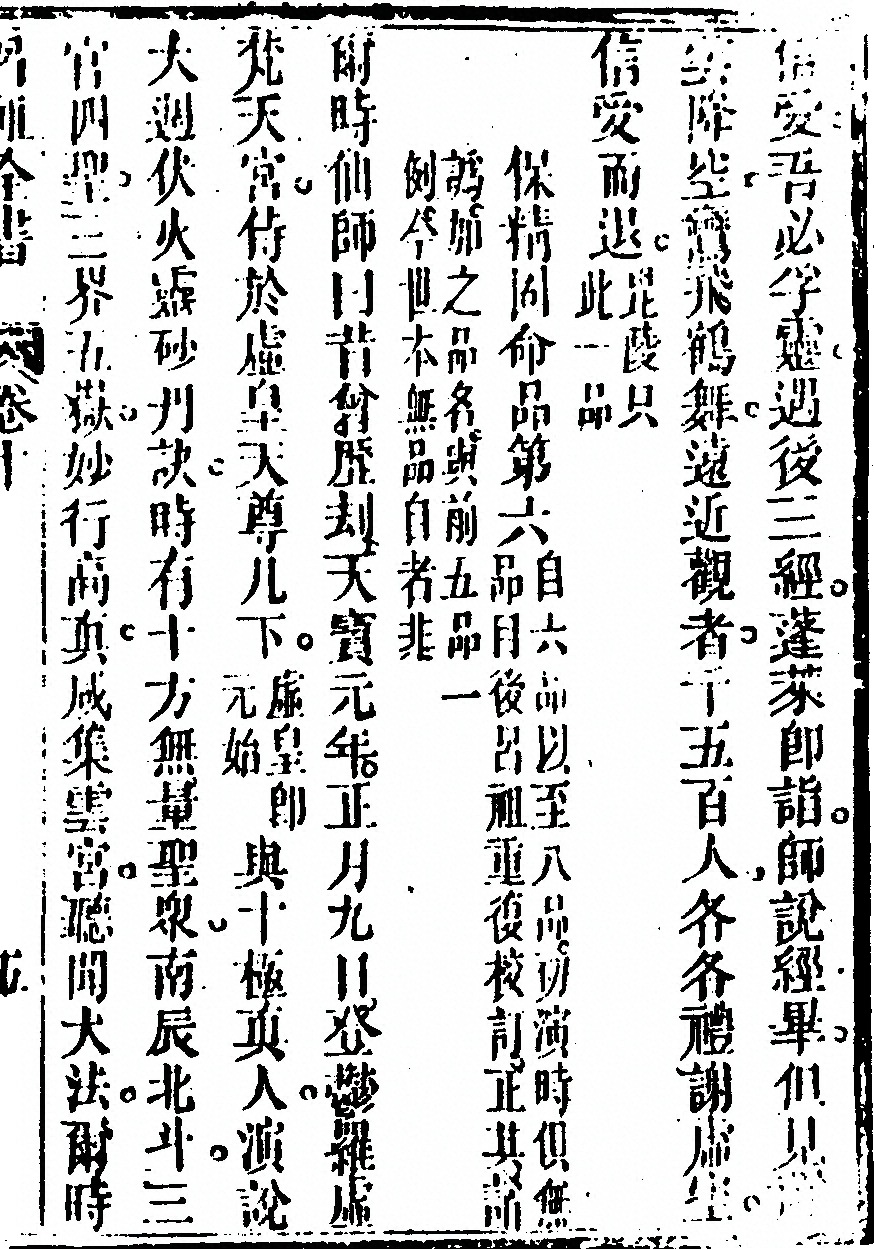 信愛吾必孚靈遇後三經蓬萊卽詣師說經畢但見
降空鸞飛鶴舞遠近觀者千五百人各各禮謝虛空
信愛而退毘陵只此一品
保精固命品第六自六品以至八品初演時俱無品目後呂祖重復校訂正其訛
譌加之品名與前五品一例今世本無品目者非
爾時仙師曰昔曾歷刦天寶元年正月九日登鬱羅虛
梵天宮侍於虛皇天尊几下虛皇卽元始與十極眞人演說
大週伏火靈砂丹訣時有十方無量聖衆南辰北斗三
官四聖三界五嶽妙行高眞咸集雲宮聽聞大法爾時
全書 卷十